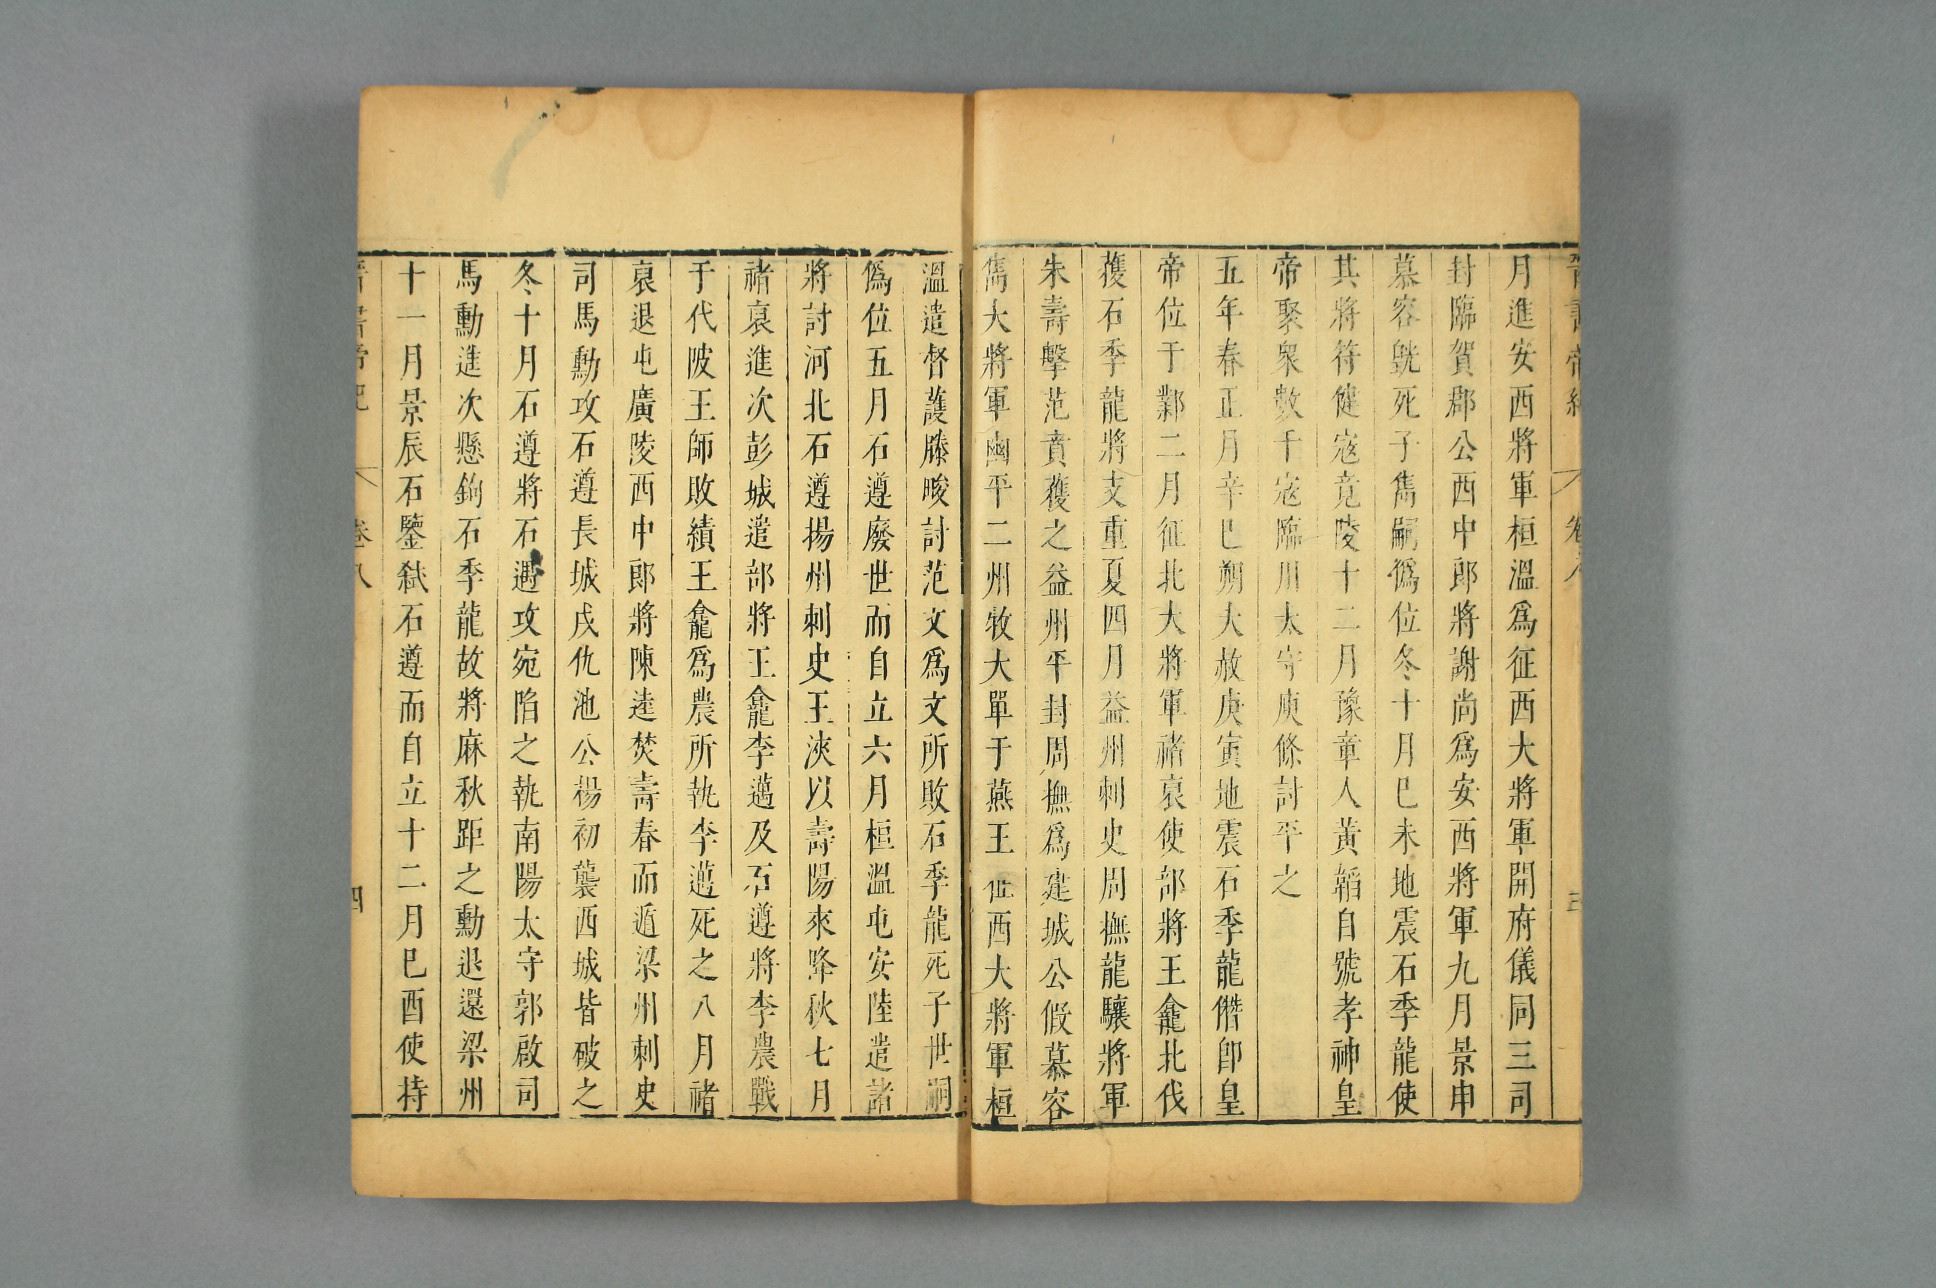 晉書帝紀 卷八 三
月進安西將軍桓溫爲征西大將軍開府儀同三司
封臨賀郡公西中郎將謝尚爲安西將軍九月景申
慕容皝死子雋嗣僞位冬十月巳未地震石季龍使
其將苻健寇竟陵十二月豫章人黃韜自號孝神皇
帝聚衆數千寇臨川太守庾條討平之
五年春正月辛巳朔大赦庚寅地震石季龍僭卽皇
帝位于鄴二月征北大將軍禇裒使部將王龕北伐
獲石季龍將支重夏四月益州刺史周撫龍驤將軍
朱燾擊范賁獲之益州平封周撫爲建城公假慕容
雋大將軍幽平二州牧大單于燕王 征西大將軍桓
溫遣督護滕畯討范文爲文所敗石季龍死子世嗣
僞位五月石遵廢世而自立六月桓溫屯安陸遣諸
將討河北石遵揚州刺史王浹以壽陽來降秋七月
禇裒進次彭城遣部將王龕李邁及石遵將李農戰
于代陂王師敗績王龕爲農所執李邁死之八月禇
裒退屯廣陵西中郎將陳逵焚壽春而遁梁州刺史
司馬勳攻石遵長城戍仇池公楊初襲西城皆破之
冬十月石遵將石遇攻宛陷之執南陽太守郭啟司
馬勳進次懸鉤石季龍故將麻秋距之勳退還梁州
十一月景辰石鑒弑石遵而自立十二月巳酉使持
晉書帝紀 卷八 四